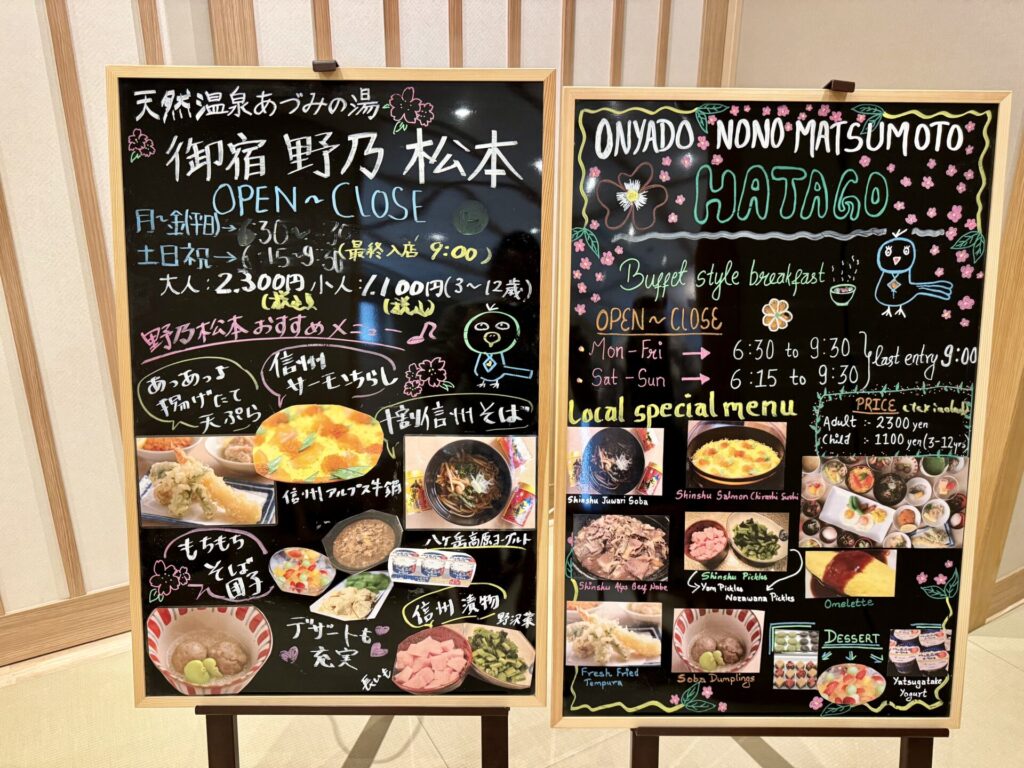 天然温泉あづみの湯
御宿 野乃 松本
OPEN~CLOSE
月~金(平日)→ 6:30~
土日祝→ 6:15~9:30 (最終入店 9:00)
大人:2.300円 小人:1.100円(3~12歳)
(税込) (税込)
野乃松本おすすめメニュー♪
あつあつ♪
揚げたて
天ぷら
信州
サーモンちらし
十割信州そば
信州アルプス牛鍋
八ヶ岳高原ヨーグルト
もちもち
そば
団子
デザートも
充実
信州 漬物
野沢菜
長いも
ONYADO NONO MATSUMOTO
HATAGO
Buffet style breakfast
OPEN~CLOSE
Mon-Fri → 6:30 to 9:30
Sat-Sun → 6:15 to 9:30
last entry 9:00
Local special menu
PRICE
Adult :- 2300 yen
Child :- 1100 yen (3-12yrs)
Shinshu Juwari Soba
Shinshu Salmon Chirashi Sushi
Shinshu Alps Beef Nabe
Shinshu Pickles
Yam Pickles
Nozawana Pickles
Omelette
Fresh Fried
Tempura
Soba Dumplings
DESSERT
Yatsugatake
Yogurt